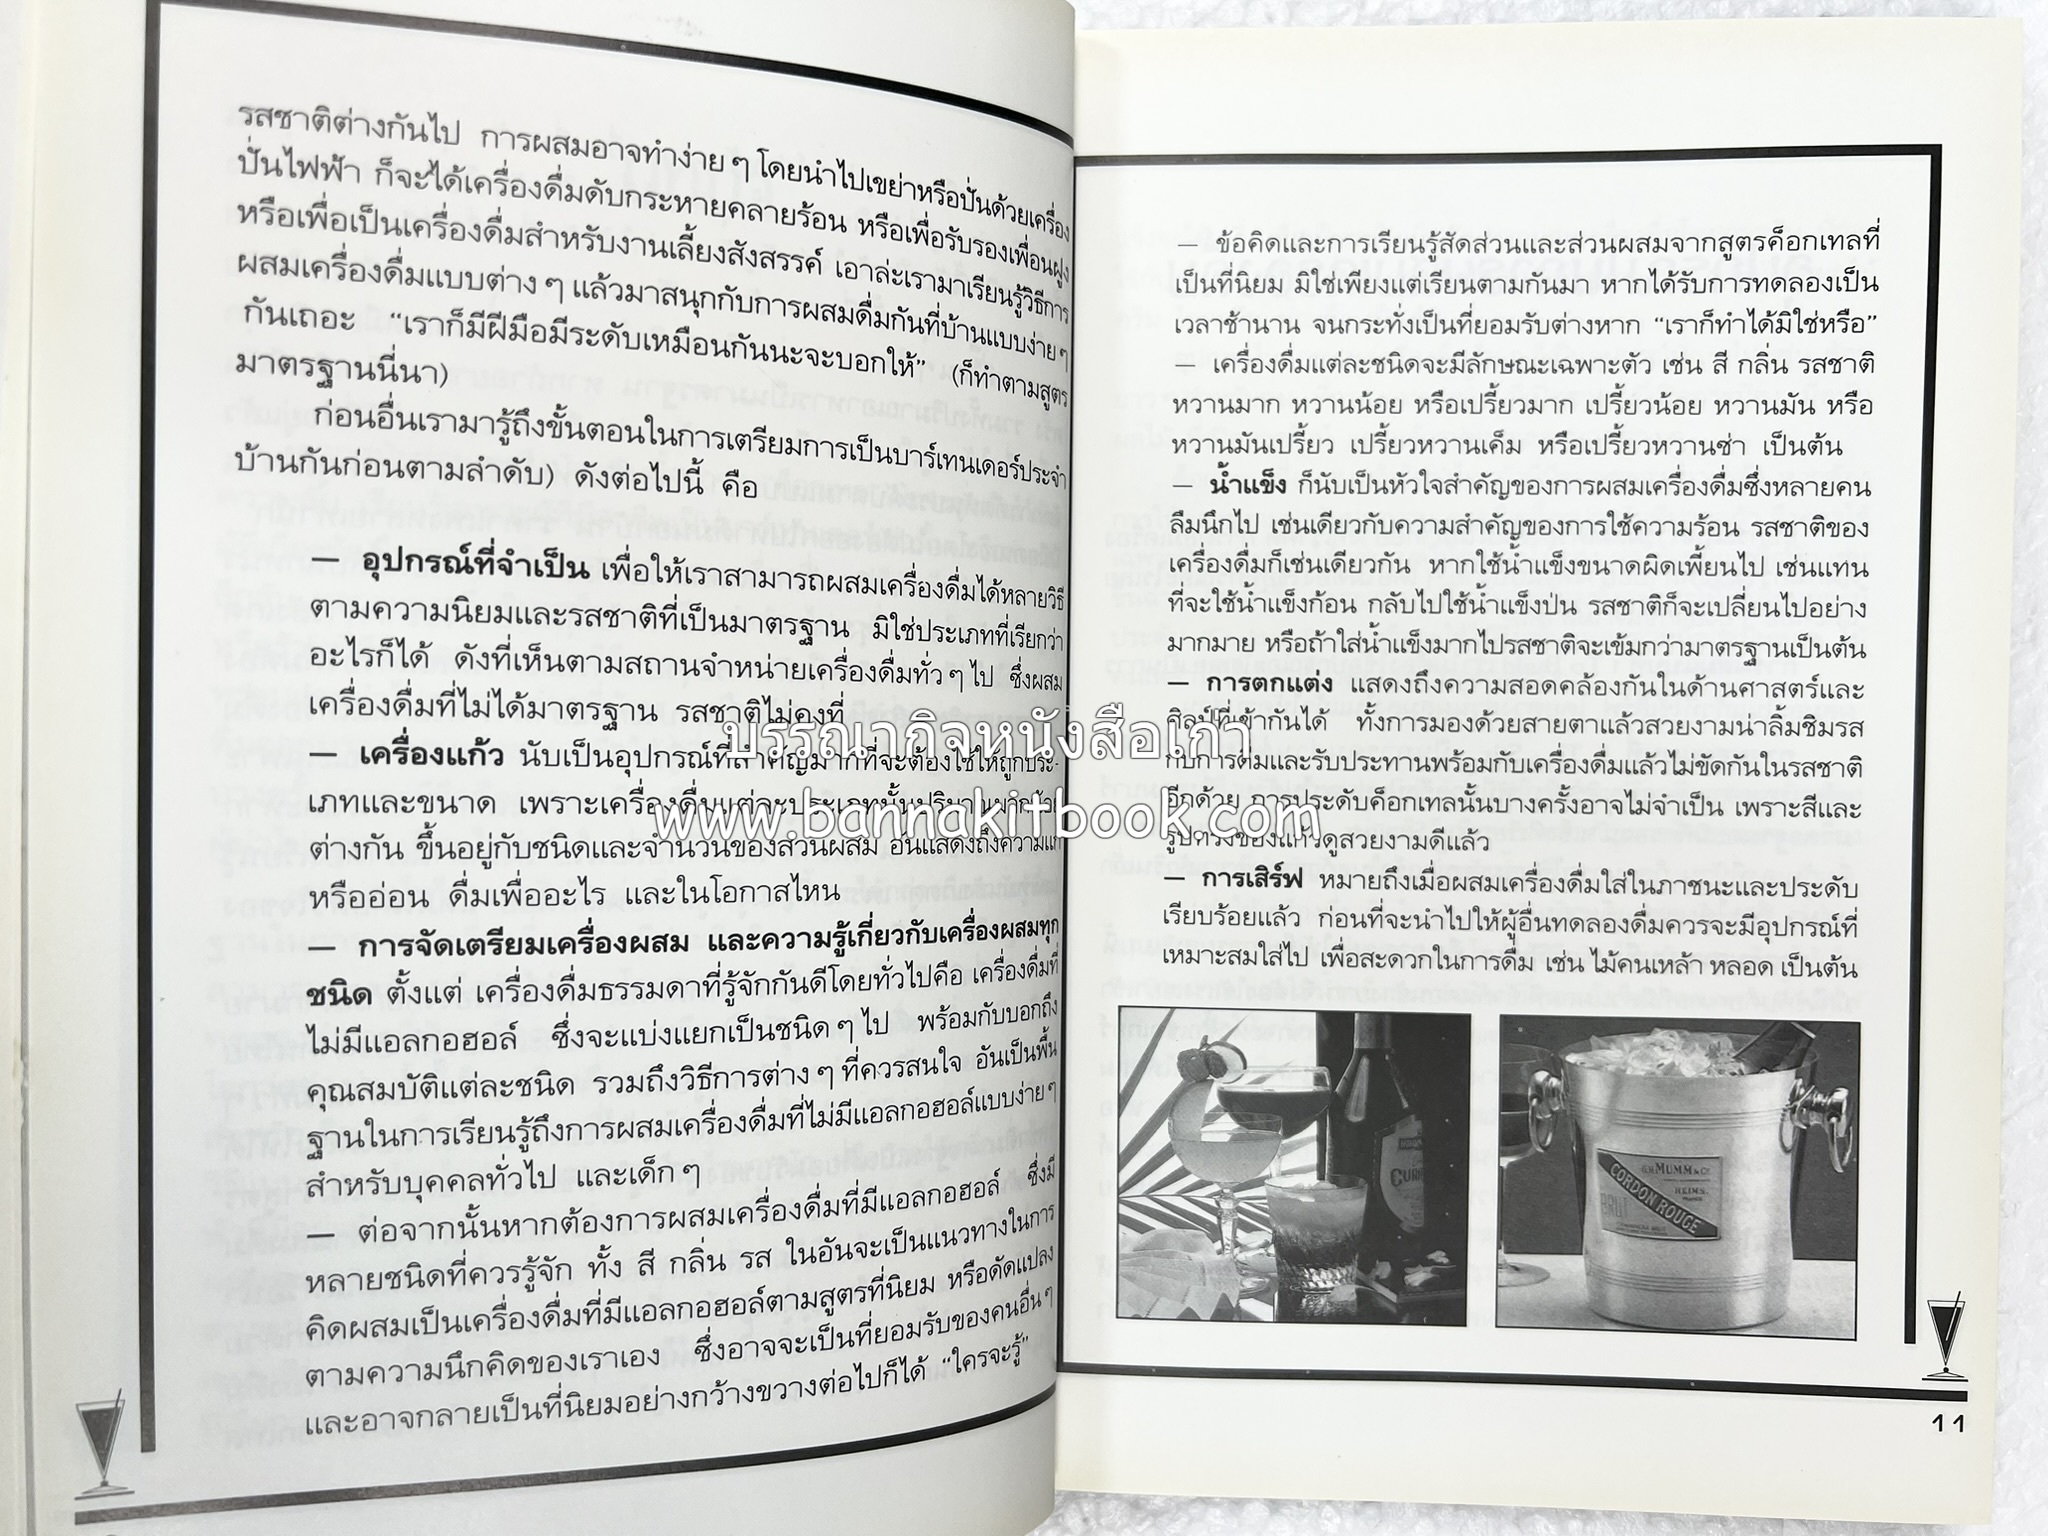 รสชาติต่างกันไป การผสมอาจทำง่าย ๆ โดยนำไปเขย่าหรือปั่นด้วยเครื่อง
ปั่นไฟฟ้า ก็จะได้เครื่องดื่มดับกระหายคลายร้อน หรือเพื่อรับรองเพื่อนฝูง
หรือเพื่อเป็นเครื่องดื่มสำหรับงานเลี้ยงสังสรรค์ เอาล่ะเรามาเรียนรู้วิธีการ
ผสมเครื่องดื่มแบบต่าง ๆ แล้วมาสนุกกับการผสมดื่มกันที่บ้านแบบง่าย ๆ
กันเถอะ “เราก็มีฝีมือมีระดับเหมือนกันนะจะบอกให้” (ก็ทำตามสูตร
มาตรฐานนี่นา)
ก่อนอื่นเรามารู้ถึงขั้นตอนในการเตรียมการเป็นบาร์เทนเดอร์ประจำ
บ้านกันก่อนตามลำดับ) ดังต่อไปนี้ คือ
— อุปกรณ์ที่จำเป็น เพื่อให้เราสามารถผสมเครื่องดื่มได้หลายวิธี
ตามความนิยมและรสชาติที่เป็นมาตรฐาน มิใช่ประเภทที่เรียกว่า
อะไรก็ได้ ดังที่เห็นตามสถานจำหน่ายเครื่องดื่มทั่ว ๆ ไป ซึ่งผสม
เครื่องดื่มที่ไม่ได้มาตรฐาน รสชาติไม่คงที่
— เครื่องแก้ว นับเป็นอุปกรณ์ที่สำคัญมากที่จะต้องใช้ให้ถูกประ-
เภทและขนาด เพราะเครื่องดื่มแต่ละประเภทนั้นปริมาณ
ต่างกัน ขึ้นอยู่กับชนิดและจำนวนของส่วนผสม อันแสดงถึงความแก่
หรืออ่อน ดื่มเพื่ออะไร และในโอกาสไหน
— การจัดเตรียมเครื่องผสม และความรู้เกี่ยวกับเครื่องผสมทุก
ชนิด ตั้งแต่ เครื่องดื่มธรรมดาที่รู้จักกันดีโดยทั่วไปคือ เครื่องดื่มที่
ไม่มีแอลกอฮอล์ ซึ่งจะแบ่งแยกเป็นชนิด ๆ ไป พร้อมกับบอกถึง
คุณสมบัติแต่ละชนิด รวมถึงวิธีการต่าง ๆ ที่ควรสนใจ อันเป็นพื้น
ฐานในการเรียนรู้ถึงการผสมเครื่องดื่มที่ไม่มีแอลกอฮอล์แบบง่าย ๆ
สำหรับบุคคลทั่วไป และเด็ก ๆ
— ต่อจากนั้นหากต้องการผสมเครื่องดื่มที่มีแอลกอฮอล์ ซึ่งมี
หลายชนิดที่ควรรู้จัก ทั้ง สี กลิ่น รส ในอันจะเป็นแนวทางในการ
คิดผสมเป็นเครื่องดื่มที่มีแอลกอฮอล์ตามสูตรที่นิยม หรือดัดแปลง
ตามความนึกคิดของเราเอง ซึ่งอาจจะเป็นที่ยอมรับของคนอื่น ๆ
และอาจกลายเป็นที่นิยมอย่างกว้างขวางต่อไปก็ได้ “ใครจะรู้”
— ข้อคิดและการเรียนรู้สัดส่วนและส่วนผสมจากสูตรค็อกเทลที่
เป็นที่นิยม มิใช่เพียงแต่เรียนตามกันมา หากได้รับการทดลองเป็น
เวลาช้านาน จนกระทั่งเป็นที่ยอมรับต่างหาก “เราก็ทำได้มิใช่หรือ”
— เครื่องดื่มแต่ละชนิดจะมีลักษณะเฉพาะตัว เช่น สี กลิ่น รสชาติ
หวานมาก หวานน้อย หรือเปรี้ยวมาก เปรี้ยวน้อย หวานมัน หรือ
หวานมันเปรี้ยว เปรี้ยวหวานเค็ม หรือเปรี้ยวหวานซ่า เป็นต้น
— น้ำแข็ง ก็นับเป็นหัวใจสำคัญของการผสมเครื่องดื่มซึ่งหลายคน
ลืมนึกไป เช่นเดียวกับความสำคัญของการใช้ความร้อน รสชาติของ
เครื่องดื่มก็เช่นเดียวกัน หากใช้น้ำแข็งขนาดผิดเพี้ยนไป เช่นแทน
ที่จะใช้น้ำแข็งก้อน กลับไปใช้น้ำแข็งป่น รสชาติก็จะเปลี่ยนไปอย่าง
มากมาย หรือถ้าใส่น้ำแข็งมากไปรสชาติจะเข้มกว่ามาตรฐานเป็นต้น
— การตกแต่ง แสดงถึงความสอดคล้องกันในด้านศาสตร์และ
ศิลป์ที่เข้ากันได้ ทั้งการมองด้วยสายตาแล้วสวยงามน่าลิ้มชิมรส
กับการดื่มและรับประทานพร้อมกับเครื่องดื่มแล้วไม่ขัดกันในรสชาติ
อีกด้วย การประดับค็อกเทลนั้นบางครั้งอาจไม่จำเป็น เพราะสีและ
รูปทรงของแก้วดูสวยงามดีแล้ว
— การเสิร์ฟ หมายถึงเมื่อผสมเครื่องดื่มใส่ในภาชนะและประดับ
เรียบร้อยแล้ว ก่อนที่จะนำไปให้ผู้อื่นทดลองดื่มควรจะมีอุปกรณ์ที่
เหมาะสมใส่ไป เพื่อสะดวกในการดื่ม เช่น ไม้คนเหล้า หลอด เป็นต้น
G.H. MUMM & Co.
REIMS
CORDON ROUGE
BRUT
11
บรรณากิจหนังสือเก่า
www.bannakitbook.com